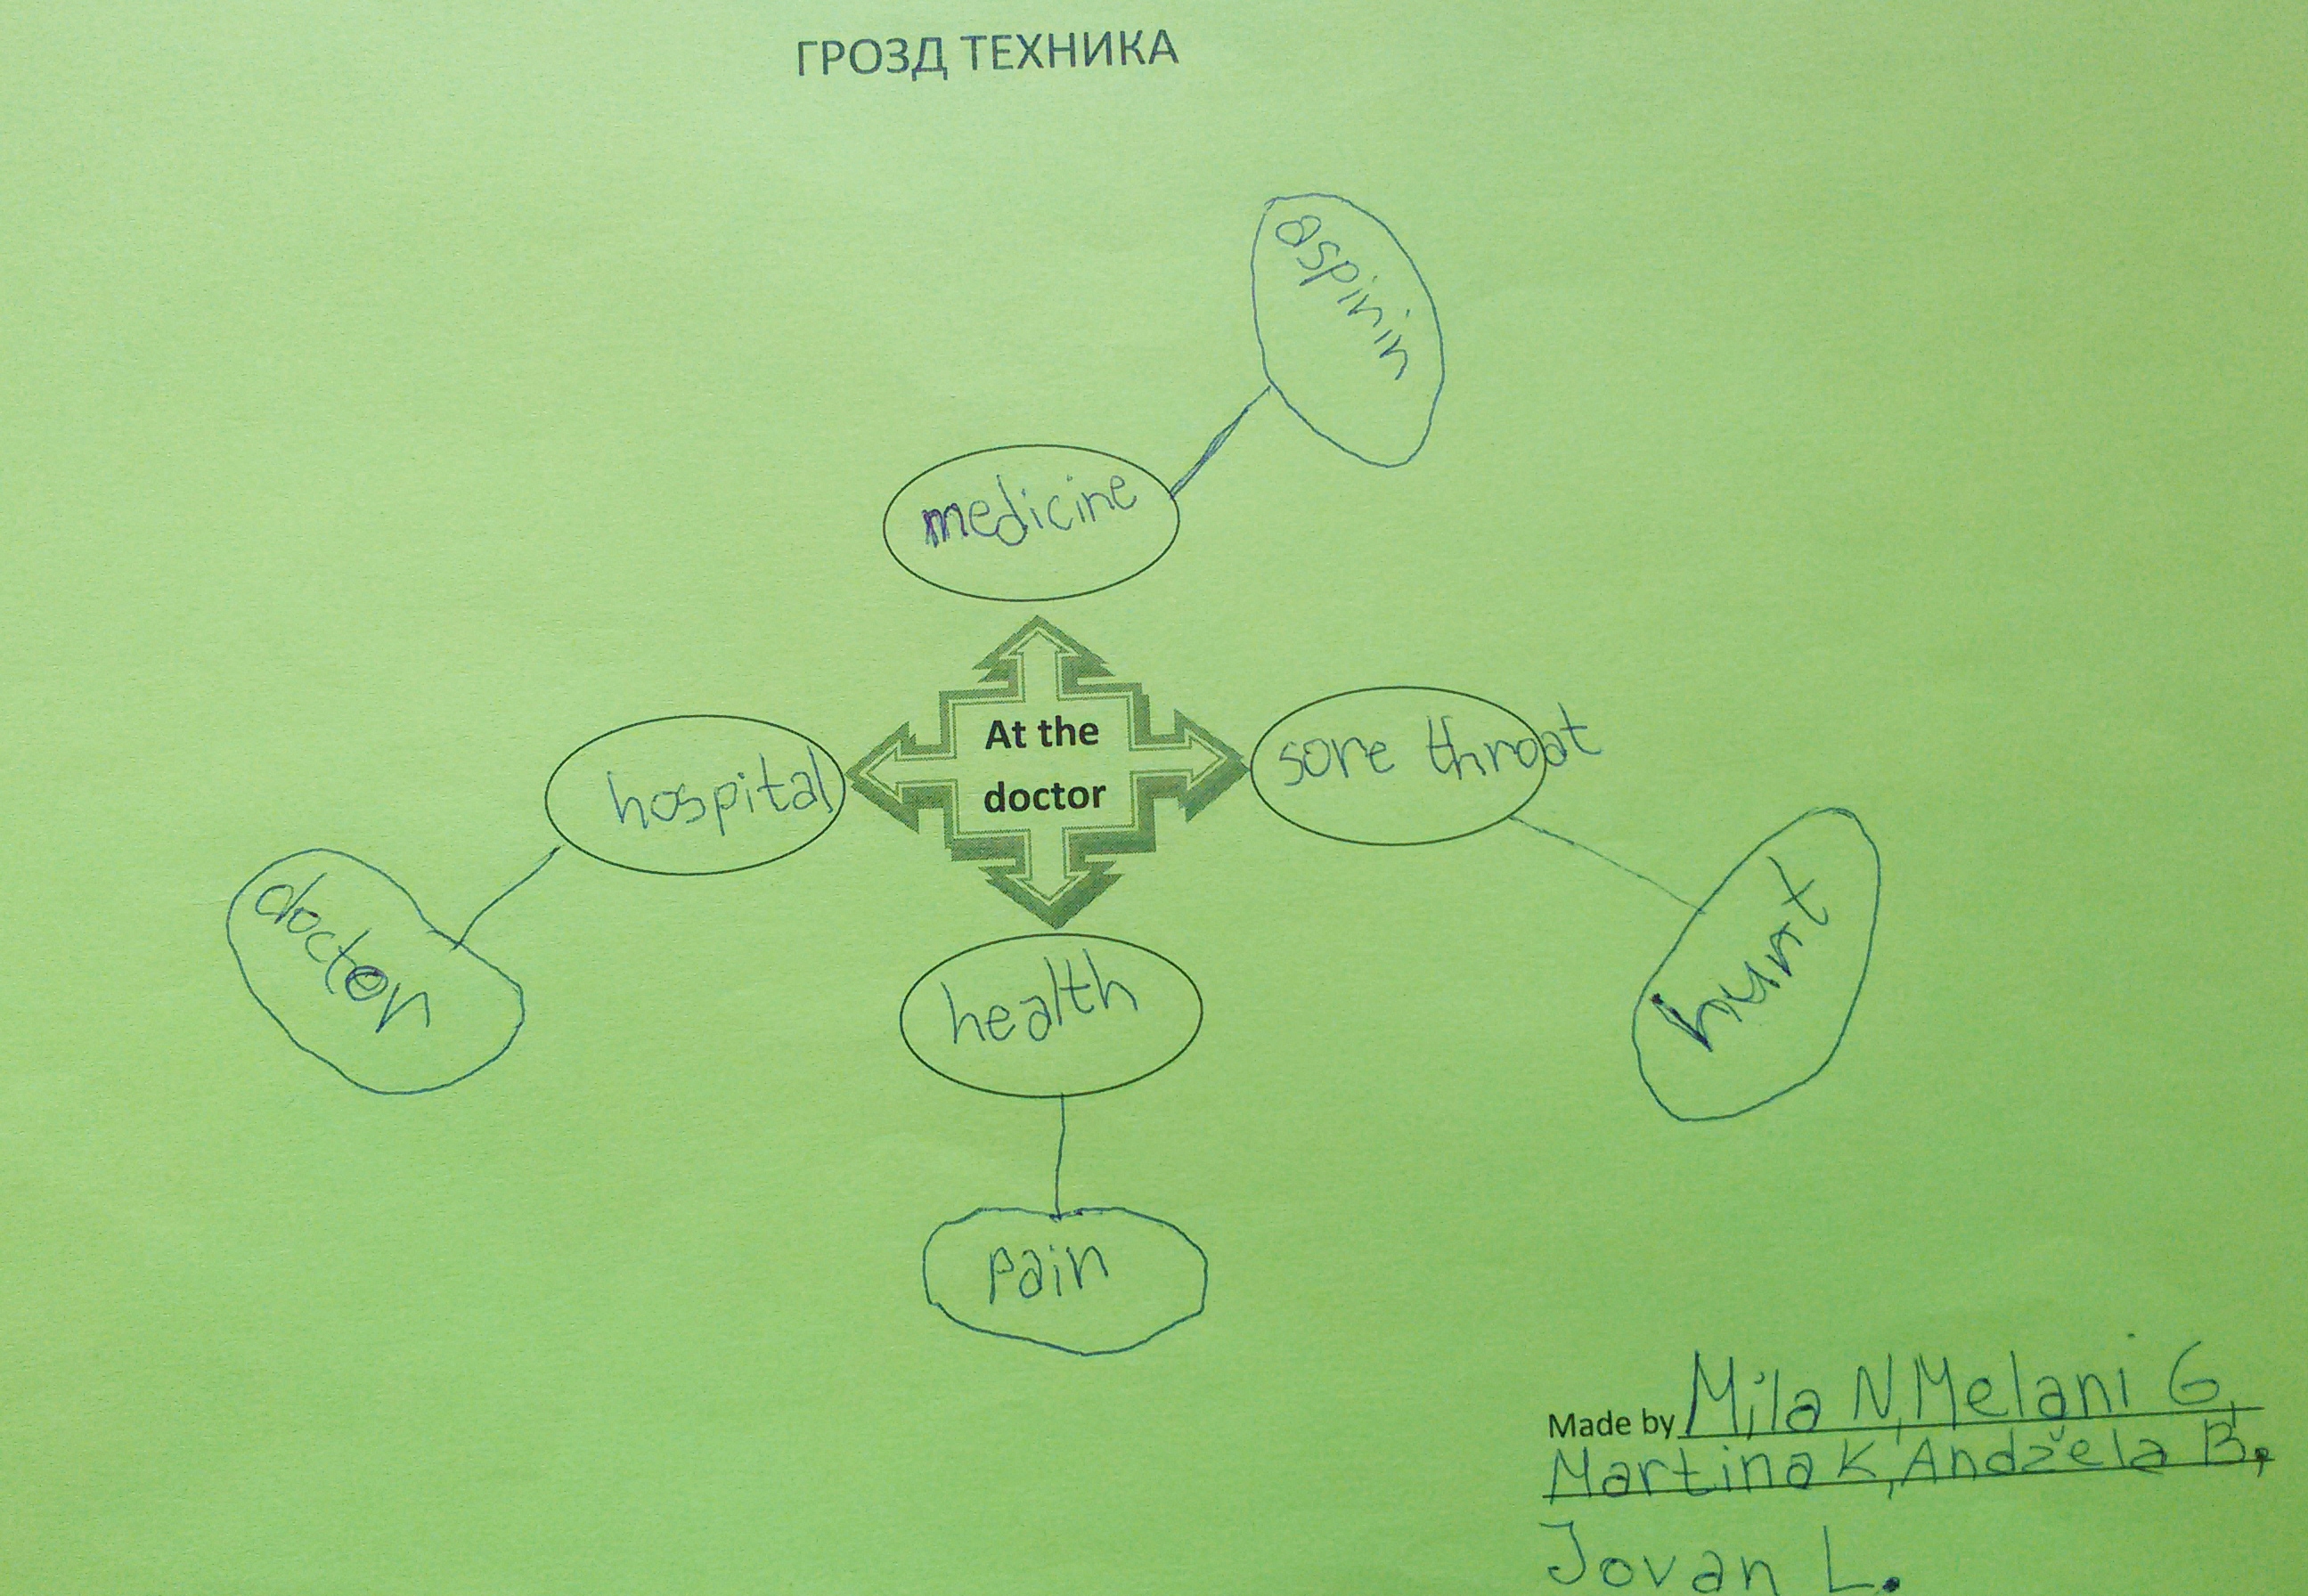 ГРОЗД ТЕХНИКА
aspirin
medicine
At the
doctor
sore throat
hospital
doctor
hurt
health
pain
Made by Mila N, Melani G,
Martina K, Andžela B,
Jovan L.